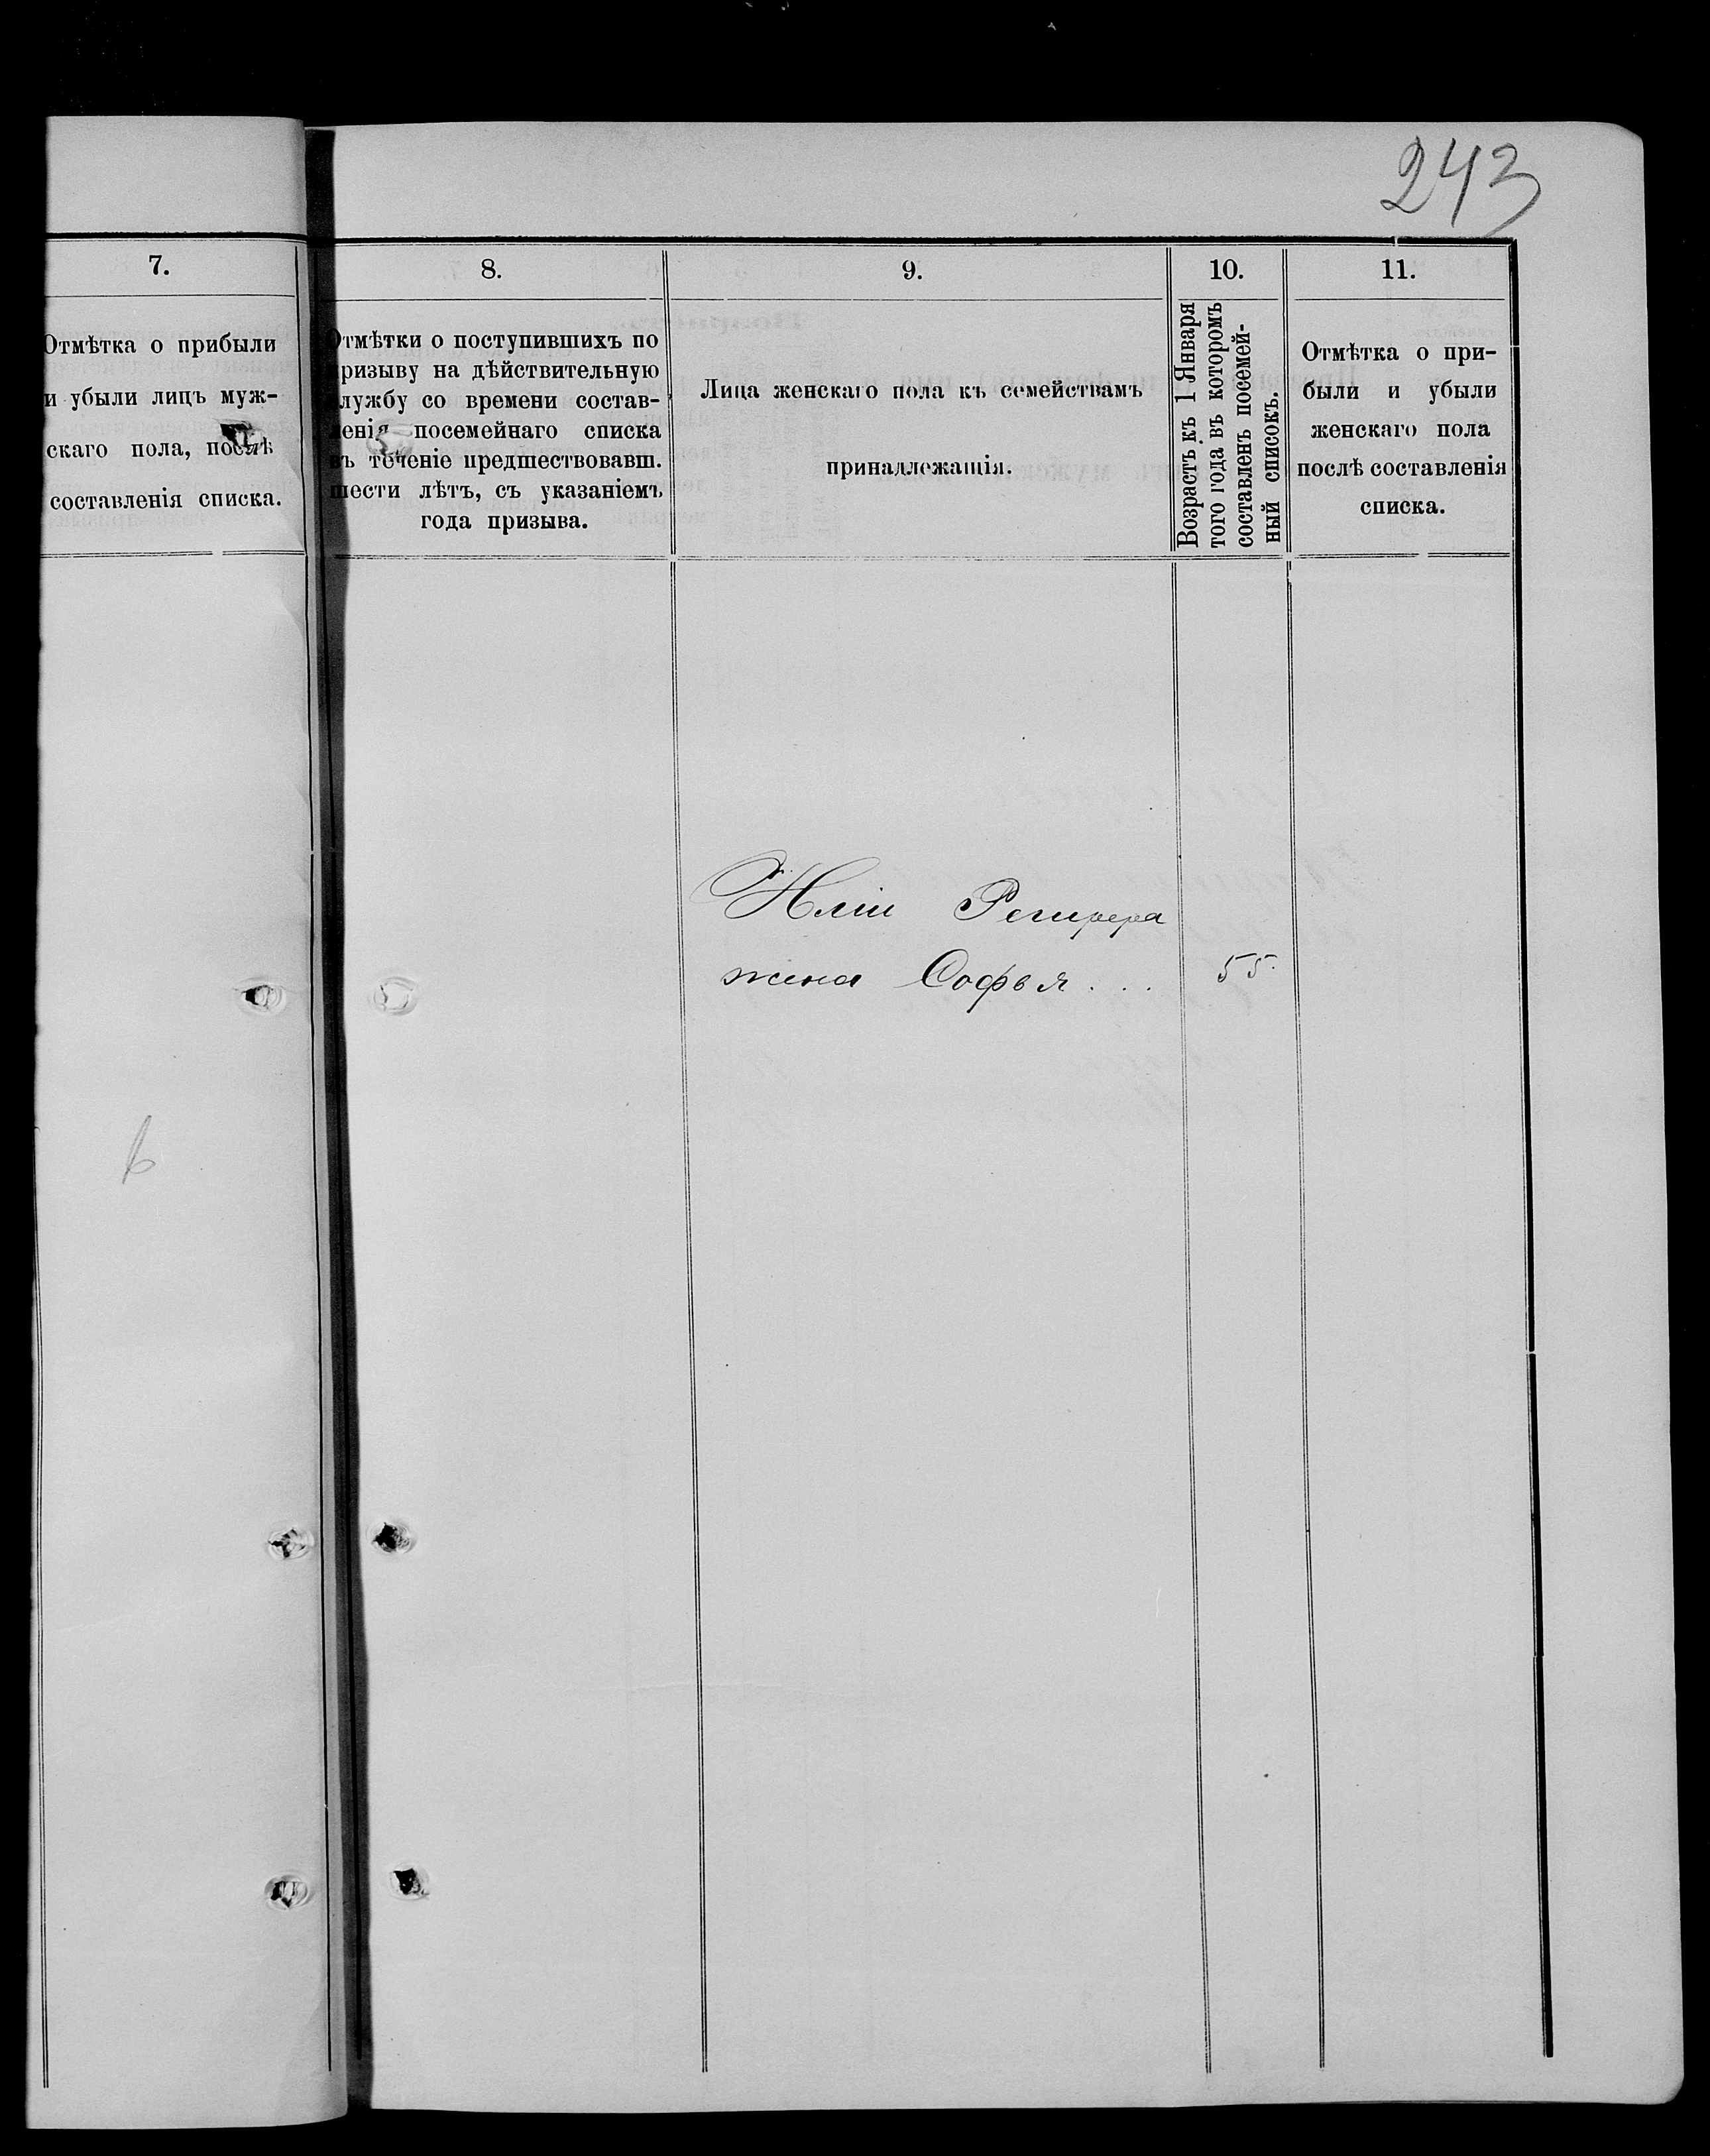 243
7.
Отмѣтка о прибыли
и убыли лицъ муж-
скаго пола, послѣ
составленія списка.
8.
Отмѣтки о поступившихъ по
призыву на дѣйствительную
службу со времени состав-
ленія посемейнаго списка
въ теченіе предшествовавш.
шести лѣтъ, съ указаніемъ
года призыва.
9.
Лица женскаго пола къ семействамъ
принадлежащія.
10.
Возрастъ къ 1 Января
того года въ которомъ
составленъ посемей-
ный списокъ.
11.
Отмѣтка о при-
были и убыли
женскаго пола
послѣ составленія
списка.
жена Софья . . . 55.